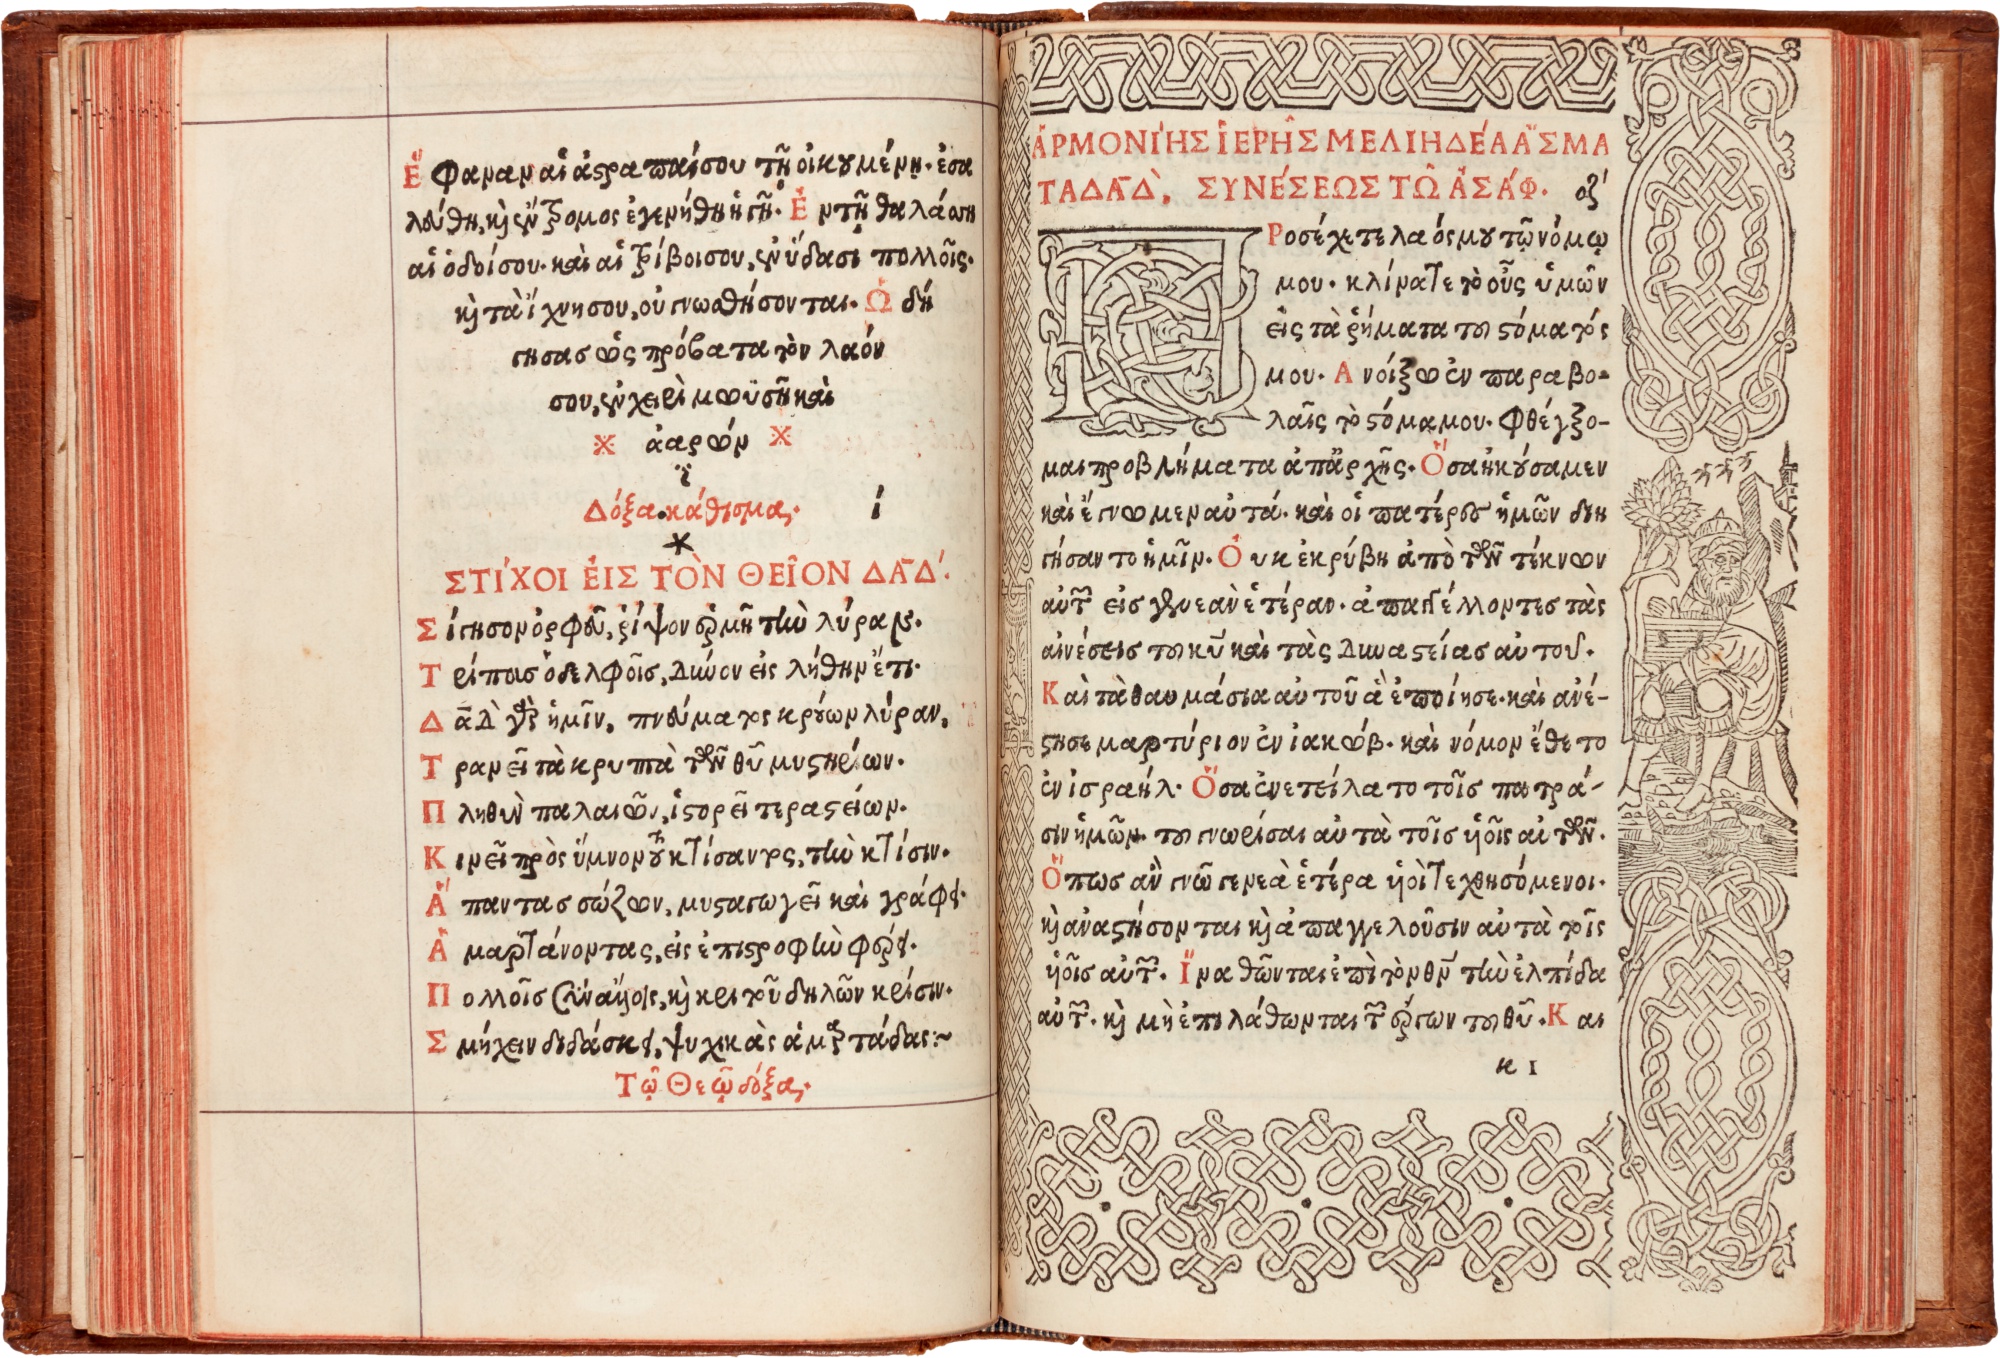 Ἔφαναν αἱ ἀστραπαί σου τῇ οἰκουμένῃ· ἐσα
λεύθη, καὶ ἔντρομος ἐγενήθη ἡ γῆ. Ἐν τῇ θαλάσσῃ
αἱ ὁδοί σου· καὶ αἱ τρίβοι σου, ἐν ὕδασι πολλοῖς.
καὶ τὰ ἴχνη σου, οὐ γνωσθήσονται. Ὡδή
γησας ὡς πρόβατα τὸν λαόν
σου, ἐν χειρὶ μωϋσῆ καὶ
ἀαρών
ϊ
Δόξα. κάθισμα. ί
ΣΤΊΧΟΙ ἘΙΣ ΤῸΝ ΘΕῖΟΝ ΔᾹΔ̀.
Σίγησον ὀρφεῦ, ῥίψον ἑρμῆ τὴν λύραν.
Τρίπους ὁ δελφοῖς, δῦνον εἰς λήθην ἔτι.
Δᾱδ̀ γὰρ ἡμῖν, πνεύματος κρούων λύραν,
Τρανεῖ τὰ κρυπτὰ τῶν θῦ μυστηρίων.
Πληθὺν παλαιῶν, ἱστορεῖ τεραστείων.
Κινεῖ πρὸς ὕμνον τοῦ κτίσαντος, τὴν κτίσιν.
Ἅπαντας σώζων, μυσταγωγεῖ καὶ γράφει.
Ἁμαρτάνοντας, εἰς ἐπιστροφὴν φέρει.
Πολλοῖς σὺν ἄλλοις, καὶ κριτοῦ δηλῶν κρίσιν.
Σμήχειν διδάσκει, ψυχικὰς ἁμαρτάδας:~
Τῷ Θεῷ δόξα.
ἉΡΜΟΝΊΗΣ ἹΕΡΗ͂Σ ΜΕΛΙΗΔΈΑ ἌΣΜΑ
ΤΑ ΔᾹΔ̀, ΣΥΝΈΣΕΩΣ ΤΩ͂ ἈΣΆΦ. οζʹ
ΠΡοσέχετε λαός μου τῷ νόμῳ
μου· κλίνατε τὸ οὖς ὑμῶν
εἰς τὰ ῥήματα τοῦ στόματός
μου. Ἀνοίξω ἐν παραβο-
λαῖς τὸ στόμα μου· φθέγξο-
μαι προβλήματα ἀπ' ἀρχῆς. Ὅσα ἠκούσαμεν
καὶ ἔγνωμεν αὐτά· καὶ οἱ πατέρες ἡμῶν διη
γήσαντο ἡμῖν. Οὐκ ἐκρύβη ἀπὸ τῶν τέκνων
αὐτῶν εἰς γενεὰν ἑτέραν· ἀπαγγέλλοντες τὰς
αἰνέσεις τοῦ κῦ καὶ τὰς δυναστείας αὐτοῦ.
Καὶ τὰ θαυμάσια αὐτοῦ ἃ ἐποίησε· καὶ ἀνέ-
στησε μαρτύριον ἐν ἰακώβ· καὶ νόμον ἔθετο
ἐν ἰσραήλ. Ὅσα ἐνετείλατο τοῖς πατρά-
σιν ἡμῶν· τοῦ γνωρίσαι αὐτὰ τοῖς υἱοῖς αὐτῶν.
Ὅπως ἂν γνῶ γενεὰ ἑτέρα υἱοὶ τεχθησόμενοι.
καὶ ἀναστήσονται καὶ ἀπαγγελοῦσιν αὐτὰ τοῖς
υἱοῖς αὐτῶν. Ἵνα θῶνται ἐπὶ τὸν θν̄ τὴν ἐλπίδα
αὐτῶν· καὶ μὴ ἐπιλάθωνται τῶν ἔργων τοῦ θῦ. Και
κ ι